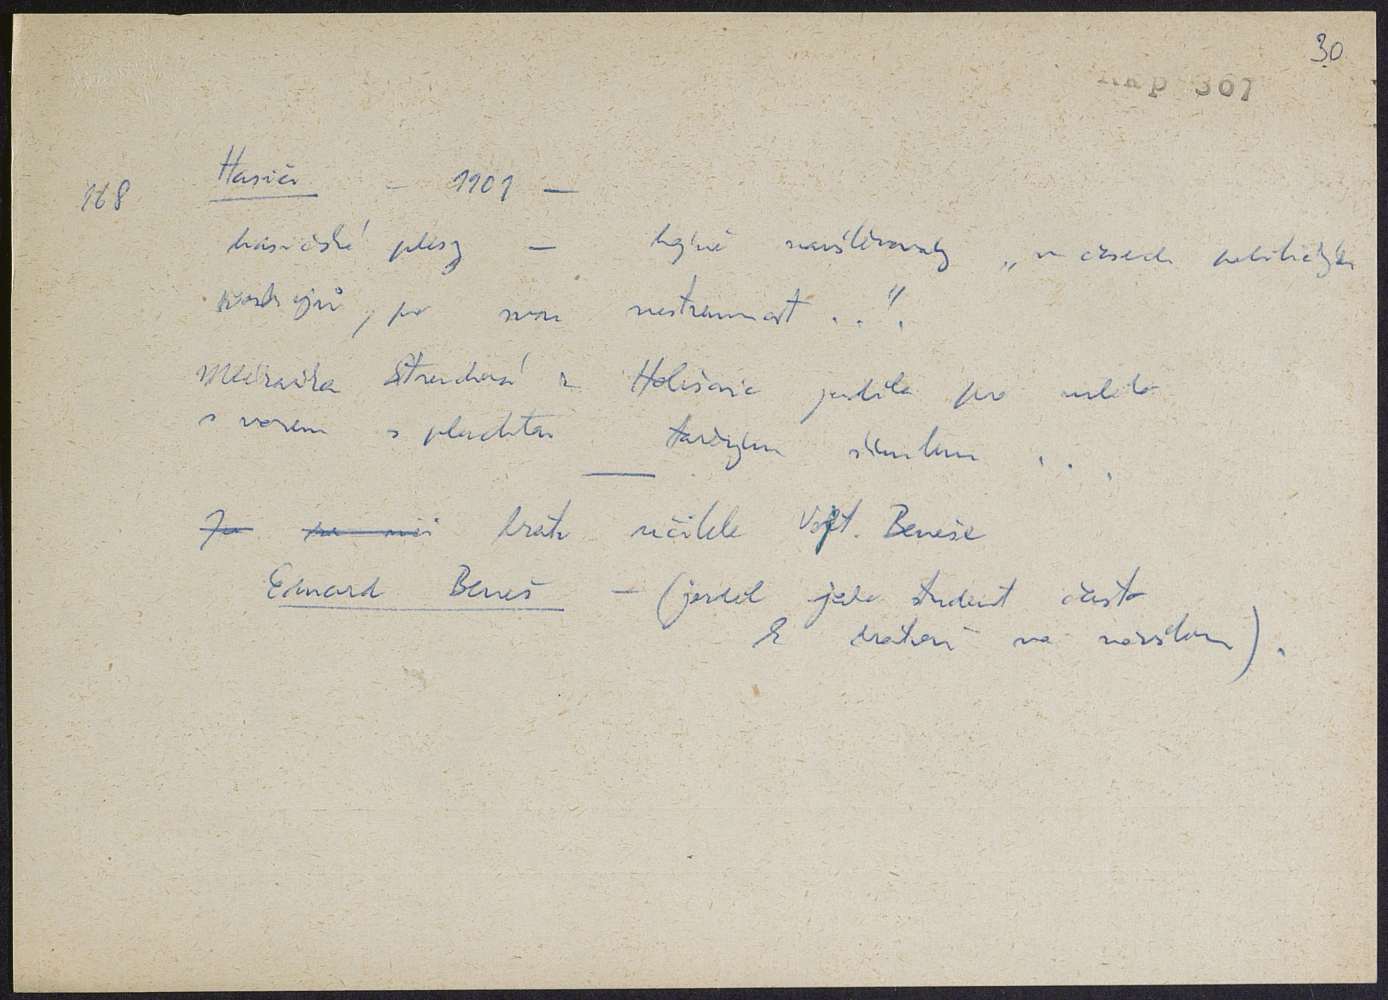 30
Rkp 367
168 Hasiči — 1901 —
hasičské plesy — hojně navštěvovaly „v časech politických
rozbrojů, pro svou nestrannost . . “.
Mlékařka Štrachová z Holešovic jezdila pro mléko
s vozem s plachtou taženým
bratr učitele Vojt. Beneše
Eduard Beneš — (jezdil jako student často
k bratrovi na návštěvu).